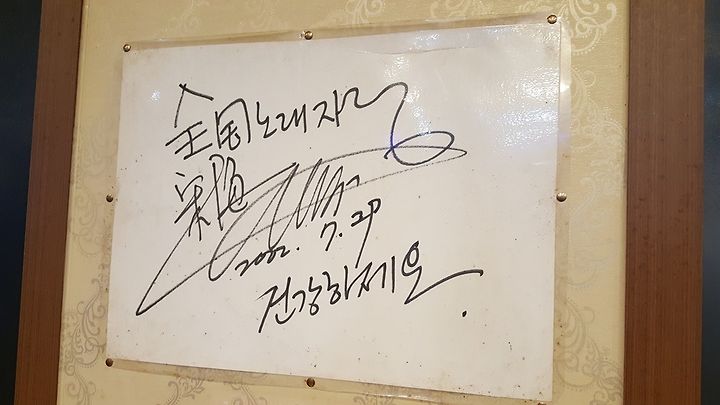 全国노래자랑
宋海
2002. 7. 29
건강하세요.